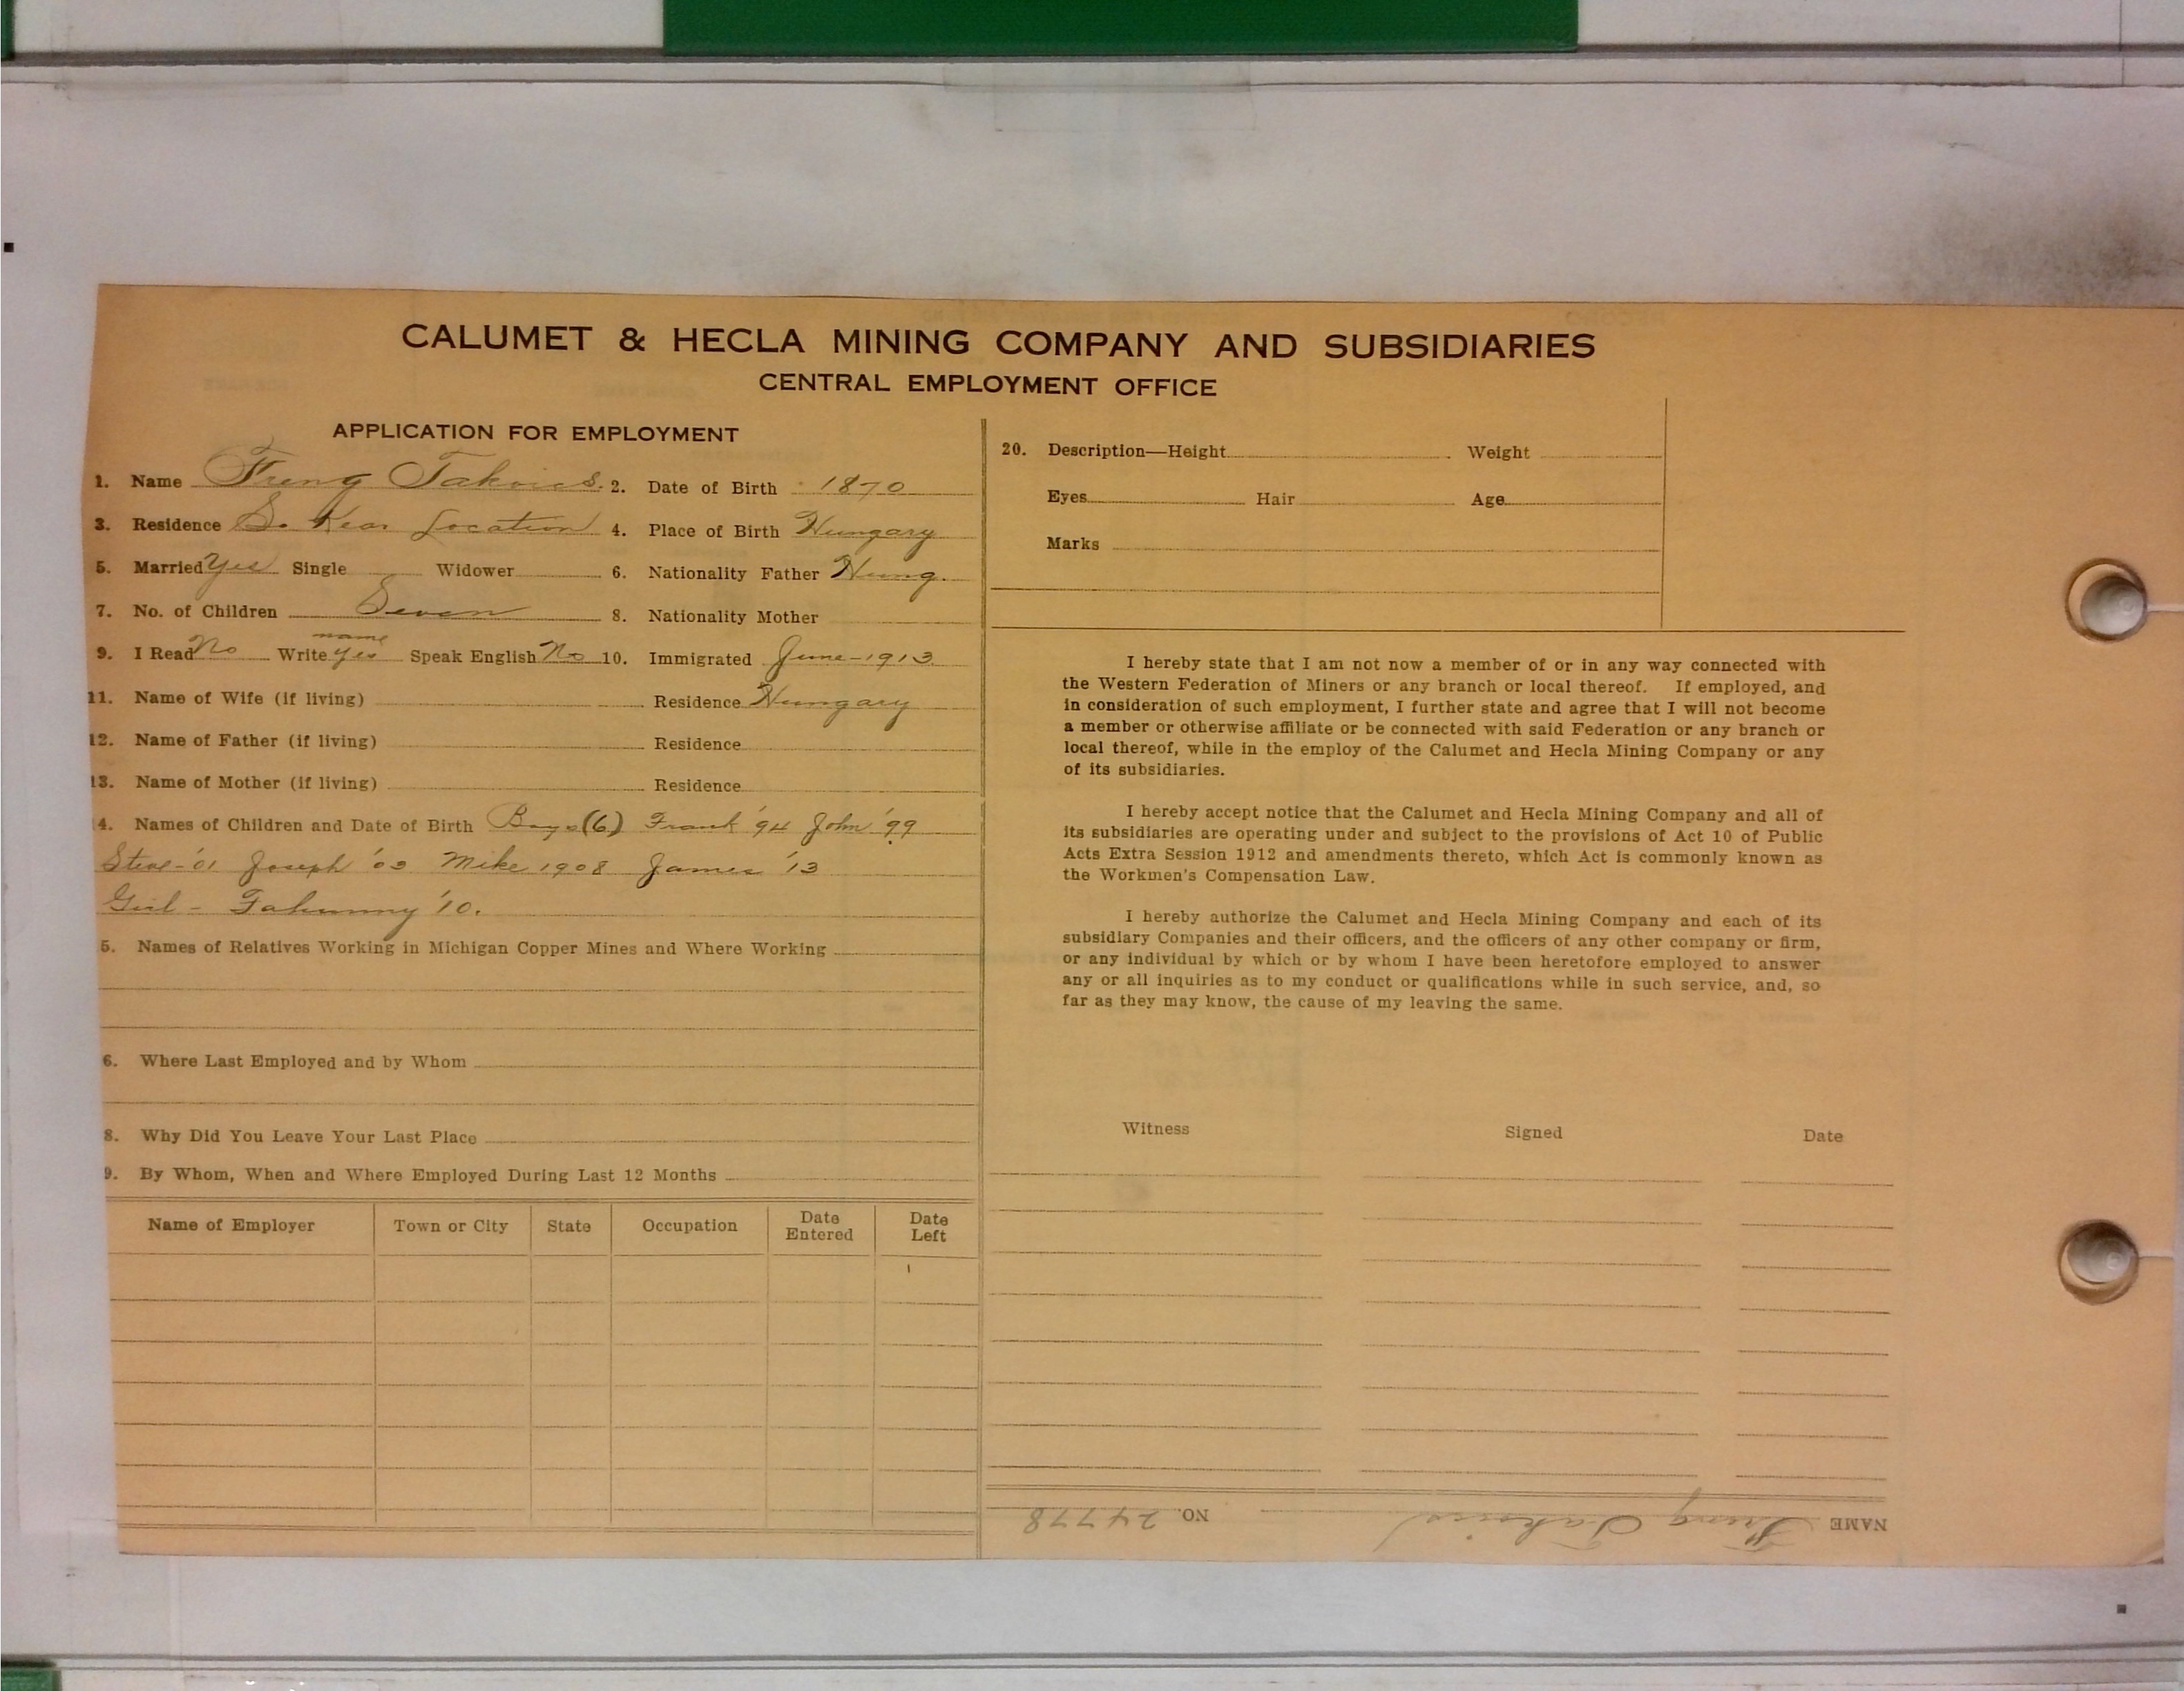 CALUMET & HECLA MINING COMPANY AND SUBSIDIARIES
CENTRAL EMPLOYMENT OFFICE
APPLICATION FOR EMPLOYMENT
1. Name Freng Takovics. 2. Date of Birth 1870
3. Residence So Kear Location 4. Place of Birth Hungary
5. Married Yes Single Widower 6. Nationality Father Hung.
7. No. of Children Seven 8. Nationality Mother
name
9. I Read No Write Yes Speak English No 10. Immigrated June-1913
11. Name of Wife (if living) Residence Hungary
12. Name of Father (if living) Residence
13. Name of Mother (if living) Residence
14. Names of Children and Date of Birth Boys (6) Frank '94 John '99
Steve-'01 Joseph '03 Mike 1908 James '13
Girl - '10.
5. Names of Relatives Working in Michigan Copper Mines and Where Working
6. Where Last Employed and by Whom
8. Why Did You Leave Your Last Place
9. By Whom, When and Where Employed During Last 12 Months
Name of Employer Town or City State Occupation Date Entered Date Left
20. Description—Height Weight
Eyes Hair Age
Marks
I hereby state that I am not now a member of or in any way connected with
the Western Federation of Miners or any branch or local thereof. If employed, and
in consideration of such employment, I further state and agree that I will not become
a member or otherwise affiliate or be connected with said Federation or any branch or
local thereof, while in the employ of the Calumet and Hecla Mining Company or any
of its subsidiaries.
I hereby accept notice that the Calumet and Hecla Mining Company and all of
its subsidiaries are operating under and subject to the provisions of Act 10 of Public
Acts Extra Session 1912 and amendments thereto, which Act is commonly known as
the Workmen's Compensation Law.
I hereby authorize the Calumet and Hecla Mining Company and each of its
subsidiary Companies and their officers, and the officers of any other company or firm,
or any individual by which or by whom I have been heretofore employed to answer
any or all inquiries as to my conduct or qualifications while in such service, and, so
far as they may know, the cause of my leaving the same.
Witness Signed Date
NAME Freng Takovics NO. 24778